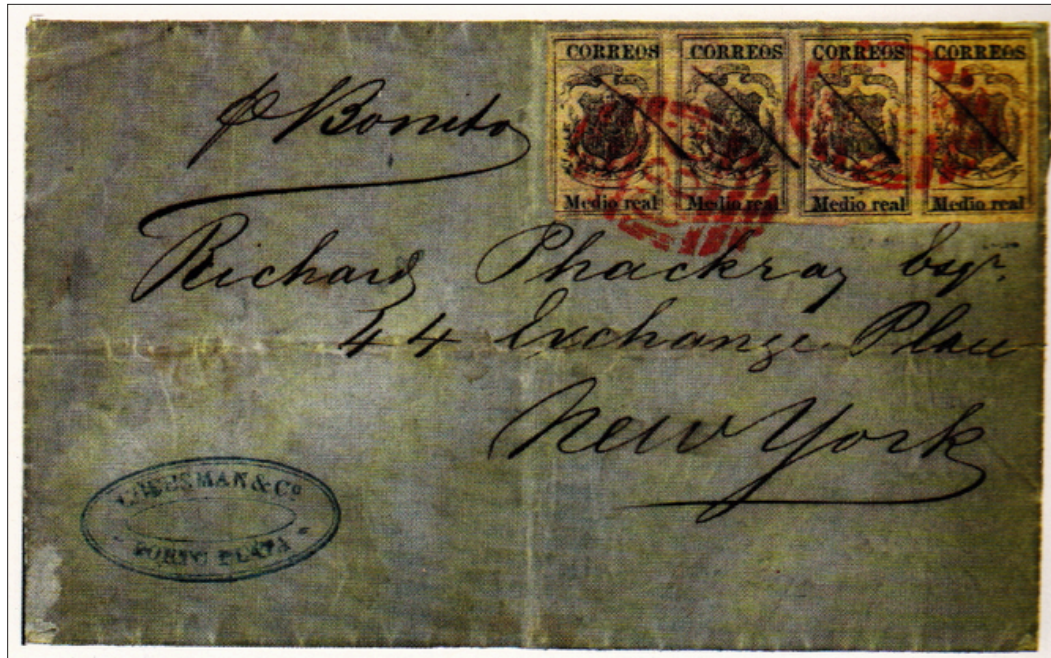 CORREOS CORREOS CORREOS CORREOS
Medio real Medio real Medio real Medio real
p Bonita
Richard Thackray Esqr.
44 Exchange Place
New York
MAN & Co
PORTO PLATA